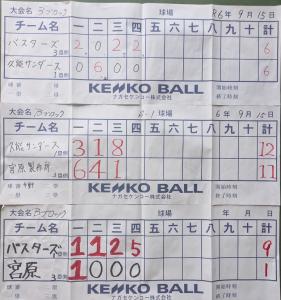 大会名 Bブロック 球場 R6年 9月 15日
チーム名 一 二 三 四 五 六 七 八 九 十 計
バスターズ 2 0 2 2 6
久能サンダース 0 6 0 0 6
KENKO BALL
ナガセケンコー株式会社
開始時刻
終了時刻
大会名 Bブロック 球場 B-1 6年 9月 15日
チーム名 一 二 三 四 五 六 七 八 九 十 計
久能サンダース 3 1 8 12
宮原製作所 6 4 1 11
KENKO BALL
ナガセケンコー株式会社
開始時刻
終了時刻
大会名 Bブロック 球場 年 月 日
チーム名 一 二 三 四 五 六 七 八 九 十 計
バスターズ 1 1 2 5 9
宮原 1 0 0 0 1
KENKO BALL
ナガセケンコー株式会社
開始時刻
終了時刻